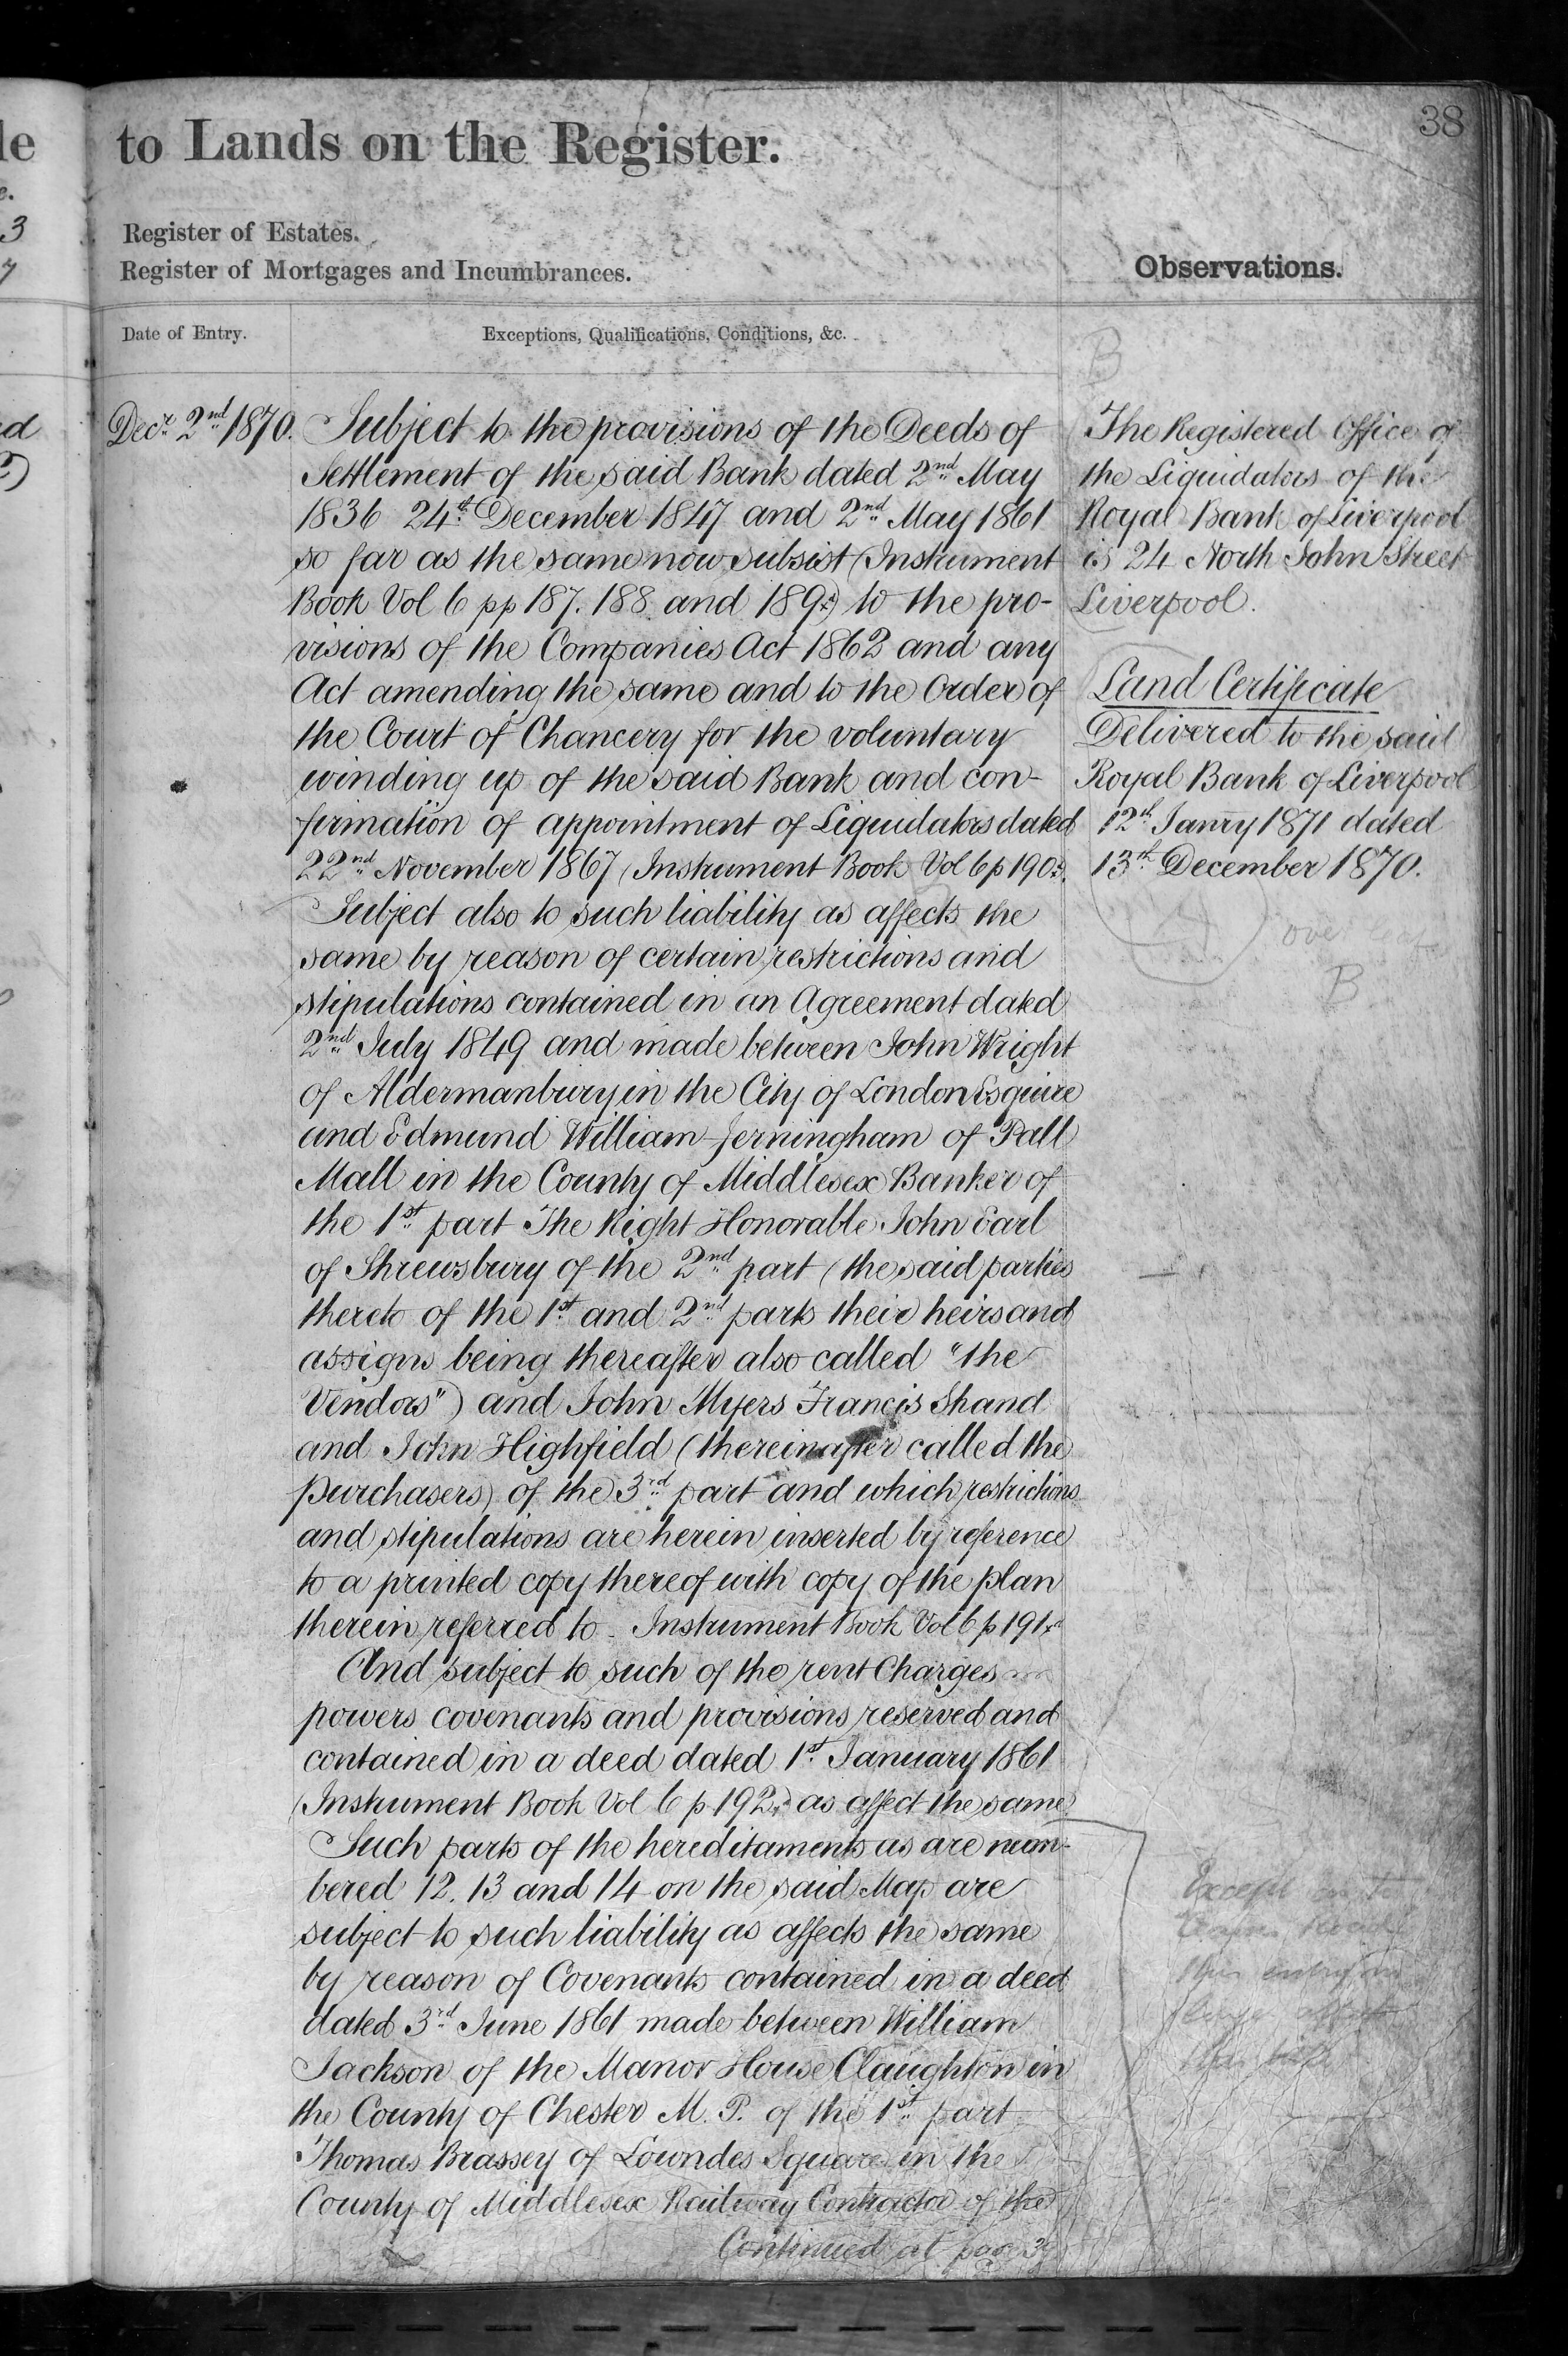 38
to Lands on the Register.
Register of Estates.
Register of Mortgages and Incumbrances.
Observations.
Date of Entry.
Exceptions, Qualifications, Conditions, &c.
Decr. 2nd 1870.
Subject to the provisions of the Deeds of
Settlement of the said Bank dated 2nd May
1836 24th December 1847 and 2nd May 1861
so far as the same now subsist (Instrument
Book Vol 6 pp 187. 188 and 189) to the pro-
visions of the Companies Act 1862 and any
Act amending the same and to the Order of
the Court of Chancery for the voluntary
winding up of the said Bank and con-
firmation of appointment of Liquidators dated
22nd November 1867 (Instrument Book Vol 6 p 190).
Subject also to such liability as affects the
same by reason of certain restrictions and
stipulations contained in an Agreement dated
2nd July 1849 and made between John Wright
of Aldermanbury in the City of London Esquire
and Edmund William Jerningham of Pall
Mall in the County of Middlesex Banker of
the 1st part The Right Honorable John Earl
of Shrewsbury of the 2nd part (the said parties
thereto of the 1st and 2nd parts their heirs and
assigns being thereafter also called "the
Vendors") and John Myers Francis Shand
and John Highfield (thereinafter called the
purchasers) of the 3rd part and which restrictions
and stipulations are herein inserted by reference
to a printed copy thereof with copy of the plan
therein referred to - Instrument Book Vol 6 p 191
And subject to such of the rent Charges
powers covenants and provisions reserved and
contained in a deed dated 1st January 1861
(Instrument Book Vol 6 p 192) as affect the same
Such parts of the hereditaments as are num-
bered 12. 13 and 14 on the said Map are
subject to such liability as affects the same
by reason of Covenants contained in a deed
dated 3rd June 1861 made between William
Jackson of the Manor House Claughton in
the County of Chester M. P. of the 1st part
Thomas Brassey of Lowndes Square in the
County of Middlesex Railway Contractor of the
Continued at page 39
B
The Registered Office of
the Liquidators of the
Royal Bank of Liverpool
is 24 North John Street
Liverpool.
Land Certificate
Delivered to the said
Royal Bank of Liverpool
12th Janry 1871 dated
13th December 1870.
over leaf
B
Except as to
this entry